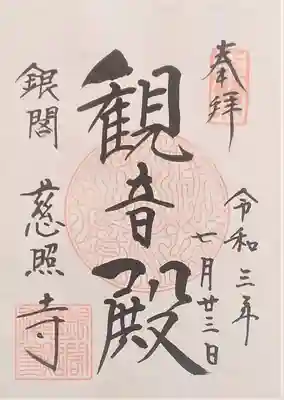 奉拝
令和三年
七月廿三日
観音殿
銀閣 慈照寺